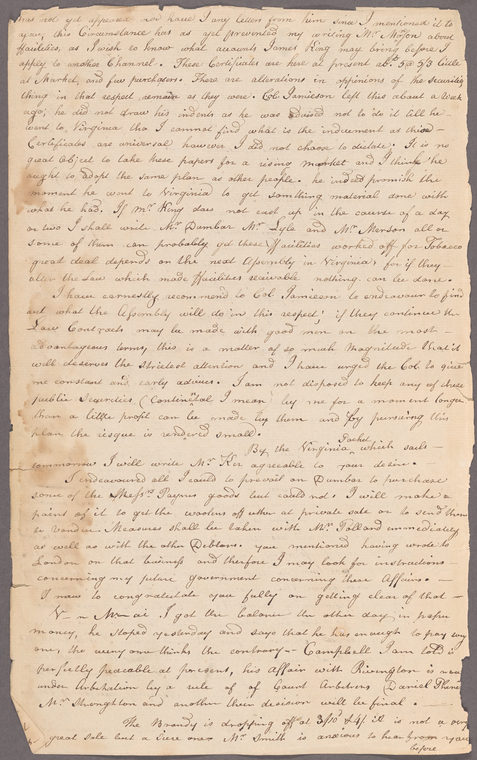 has not yet appeared nor have I any letters from him since I mentioned it to
you, this Circumstance has as yet prevented my writing Mr. about
ffacilities, as I wish to know what accounts James King may bring before I
apply to another Channel. These Certificates are here at present abt. 3@ 3/3 little
at Market, and few purchasers. There are alterations in oppinions of the Securities
thing in that respect remain as they were. Col. Jamieson left this about a Week
ago; he did not draw his indents as he was advised not to do it till he
went to Virginia tho I cannot find what is the inducement as these
Certificates are universal however I did not chuse to dictate. It is no
great Object to take these papers for a rising market and I think he
ought to adopt the same plan as other people. he indeed promish the
moment he went to Virginia to get something material done with
what he had. If Mr. King does not cast up in the course of a day
or two I shall write Mr. Dunbar Mr. Lyle and Mr. Merson all or
some of them can probably get these ffacilities worked off for Tobacco
great deal depends on the next Assembly in Virginia, for if they
alter the Law which made ffacilities receivable nothing can be done.
I have earnestly recommend to Col. Jamieson to endeavour to find
out what the Assembly will do in this respect; if they continued the
Law Contracts may be made with good men on the most
advantageous terms, this is a matter of so much Magnitude that it
well deserves the strictest attention and I have urged the Col. to give
me constant and early advices. I am not disposed to keep any of these
public Securities (Continental I mean) by me for a moment longer
than a little profit can be made by them and by pursuing this
plan the risque is rendered small.
By the Virginia Packet which sails
tomorrow I will wrote Mr. Ker agreable to your desire.
I endeavoured all I could to prevail on Dunbar to purchase
some of the Messrs. Paynes goods but could not. I will make a
point of it to get the woolens off either at private sale or to send them
to Vandue Measures shall be taken with Mr. Pollard immediately
as well as with the other Debtors. you mentioned having wrote to
London on that business and therefore I may look for instructions
concerning my future government concerning these Affairs.
I now to congratulate you fully on getting clear of that
I got the balance the other day in paper
money, he stoped yesterday and says that he has enough to pay every
one, tho every one thinks the contrary - Campbell I am told is
perfectly peacable at present, his Affair with Rivington is now
under Arbitration by a rule of of Court Arbitrors Daniel
Mr. Shoughton and another their decision will be final.
The Brandy is dropping off at 3/10 & 4/ it is not a very
great sale but a sure one. Mr. Smith is anxious to hear from you
before